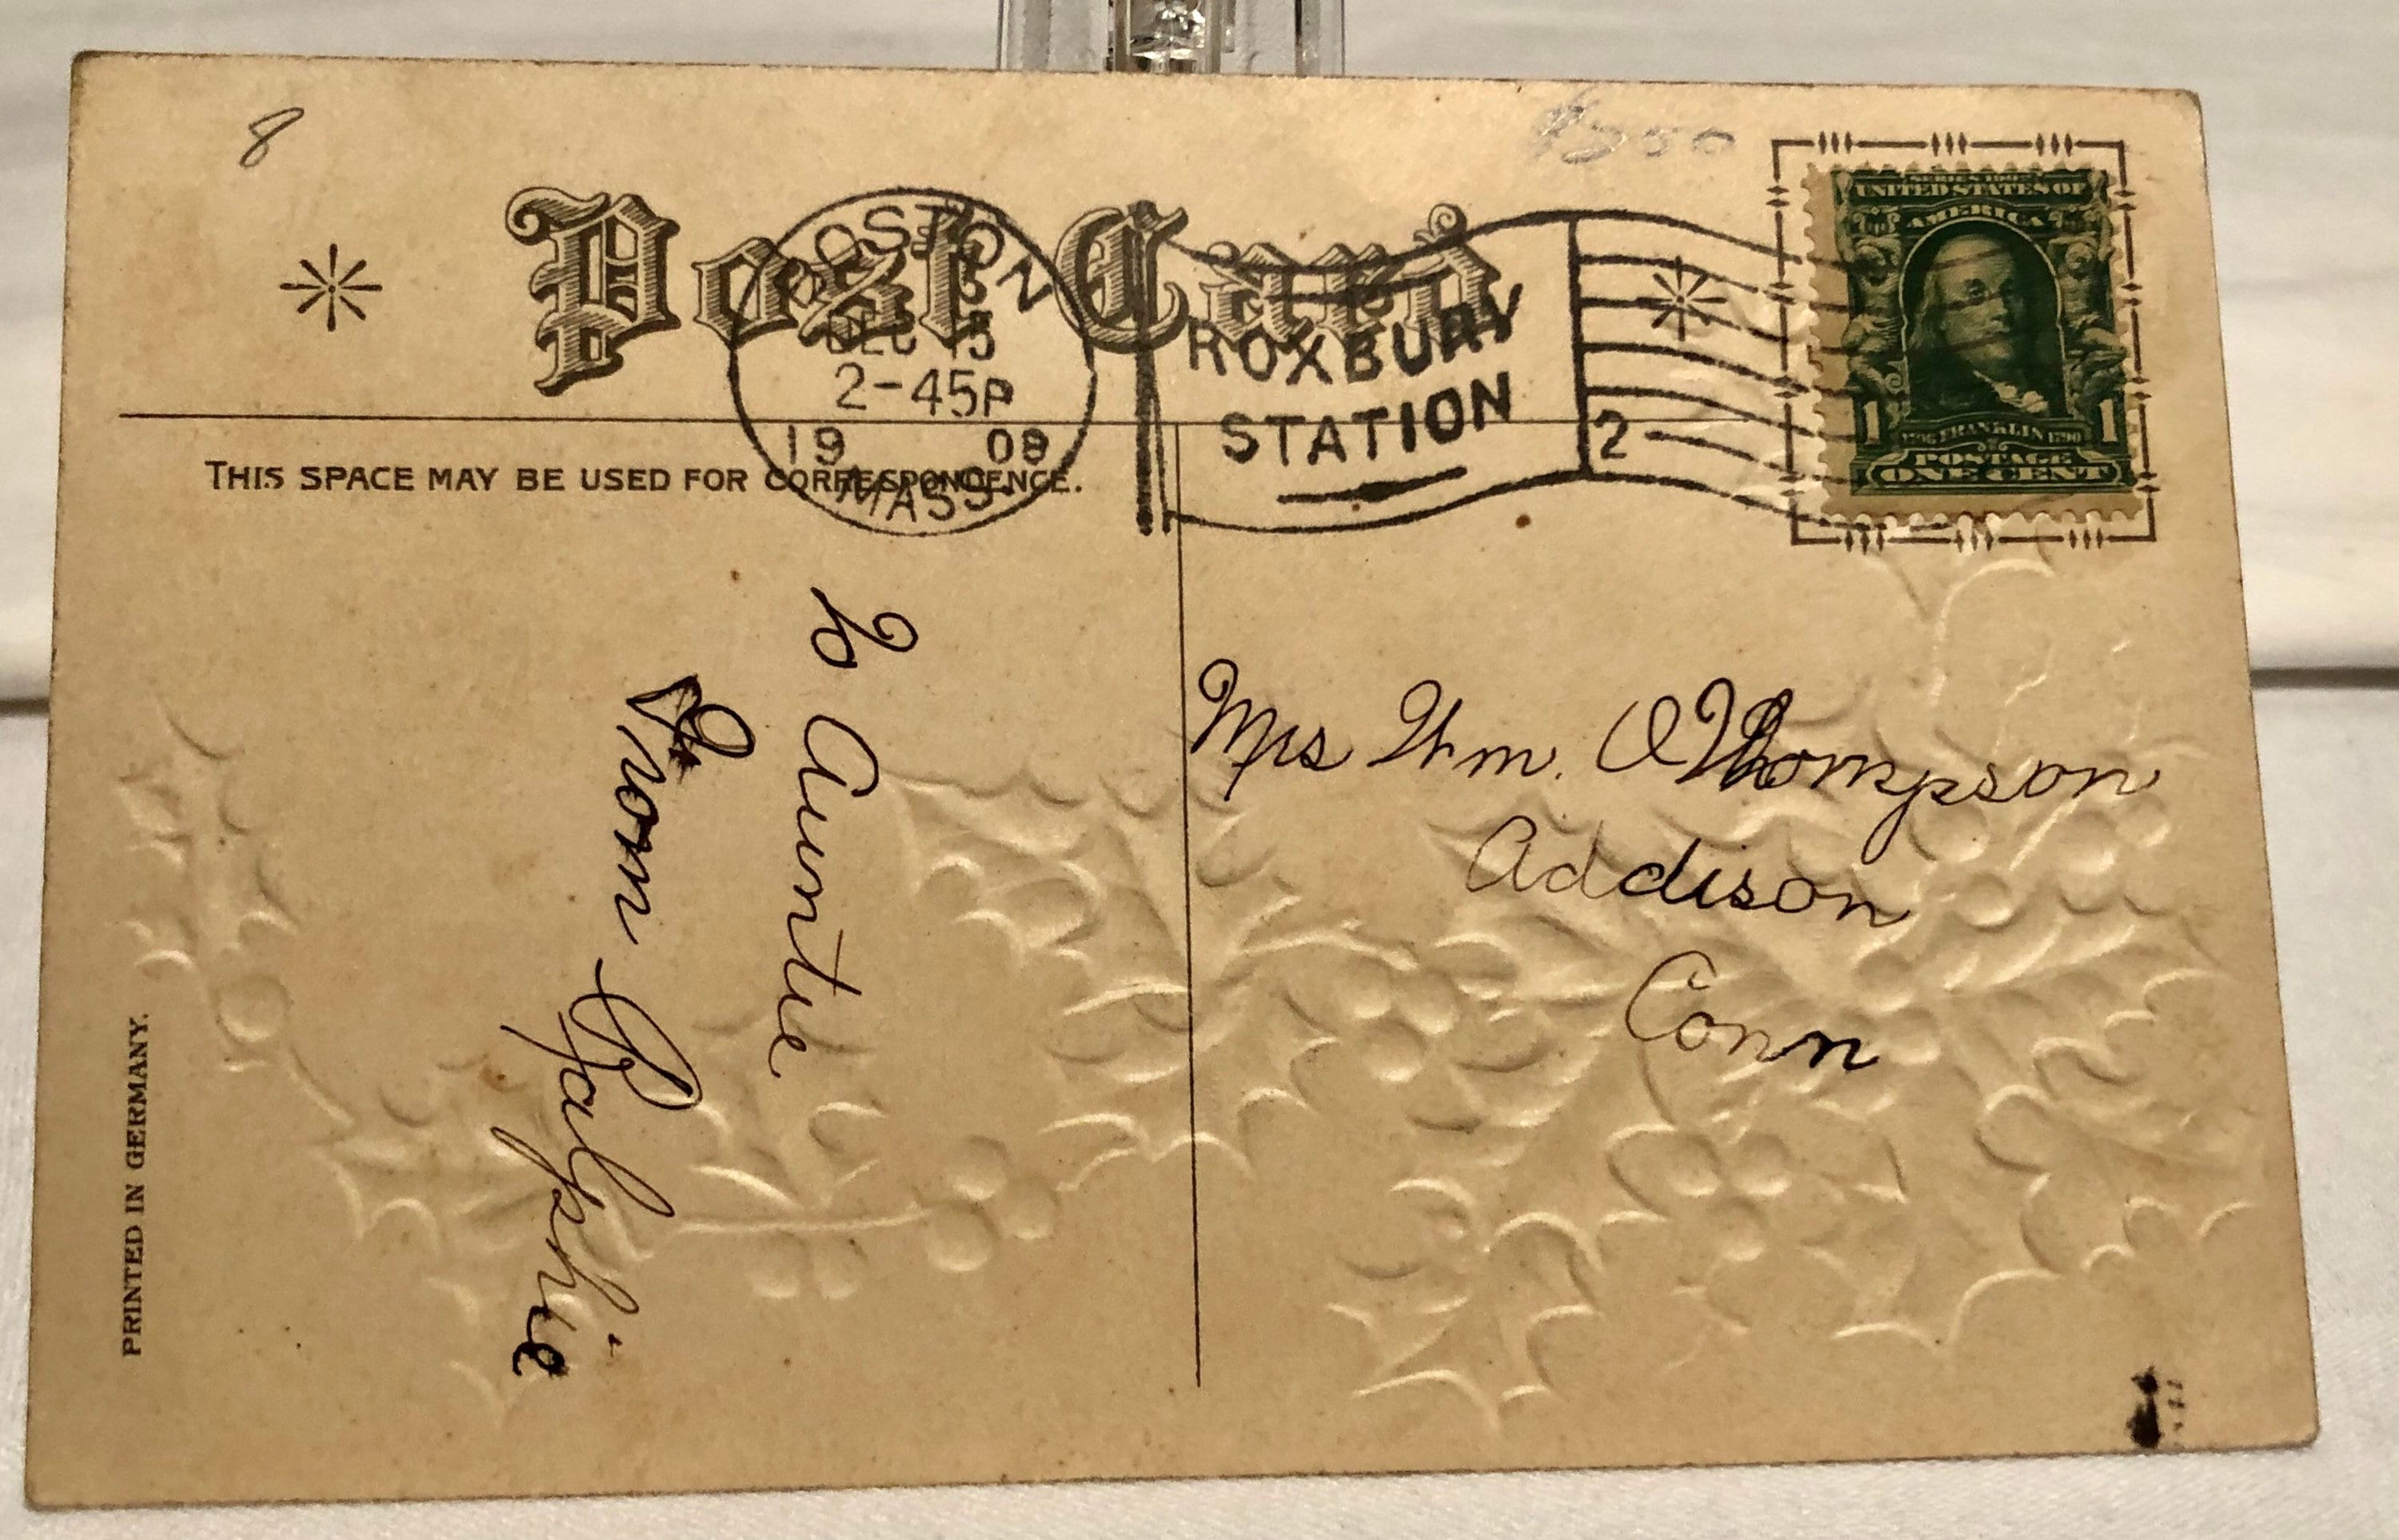 8
$3.50
Post Card
BOSTON
DEC 15
2-45P
19 08
MASS.
ROXBURY
STATION
2
UNITED STATES OF
AMERICA
1 1706 FRANKLIN 1790 1
POSTAGE
ONE CENT
THIS SPACE MAY BE USED FOR CORRESPONDENCE.
To Auntie
From Ralphie
Mrs Wm. O Thompson
Addison
Conn
PRINTED IN GERMANY.